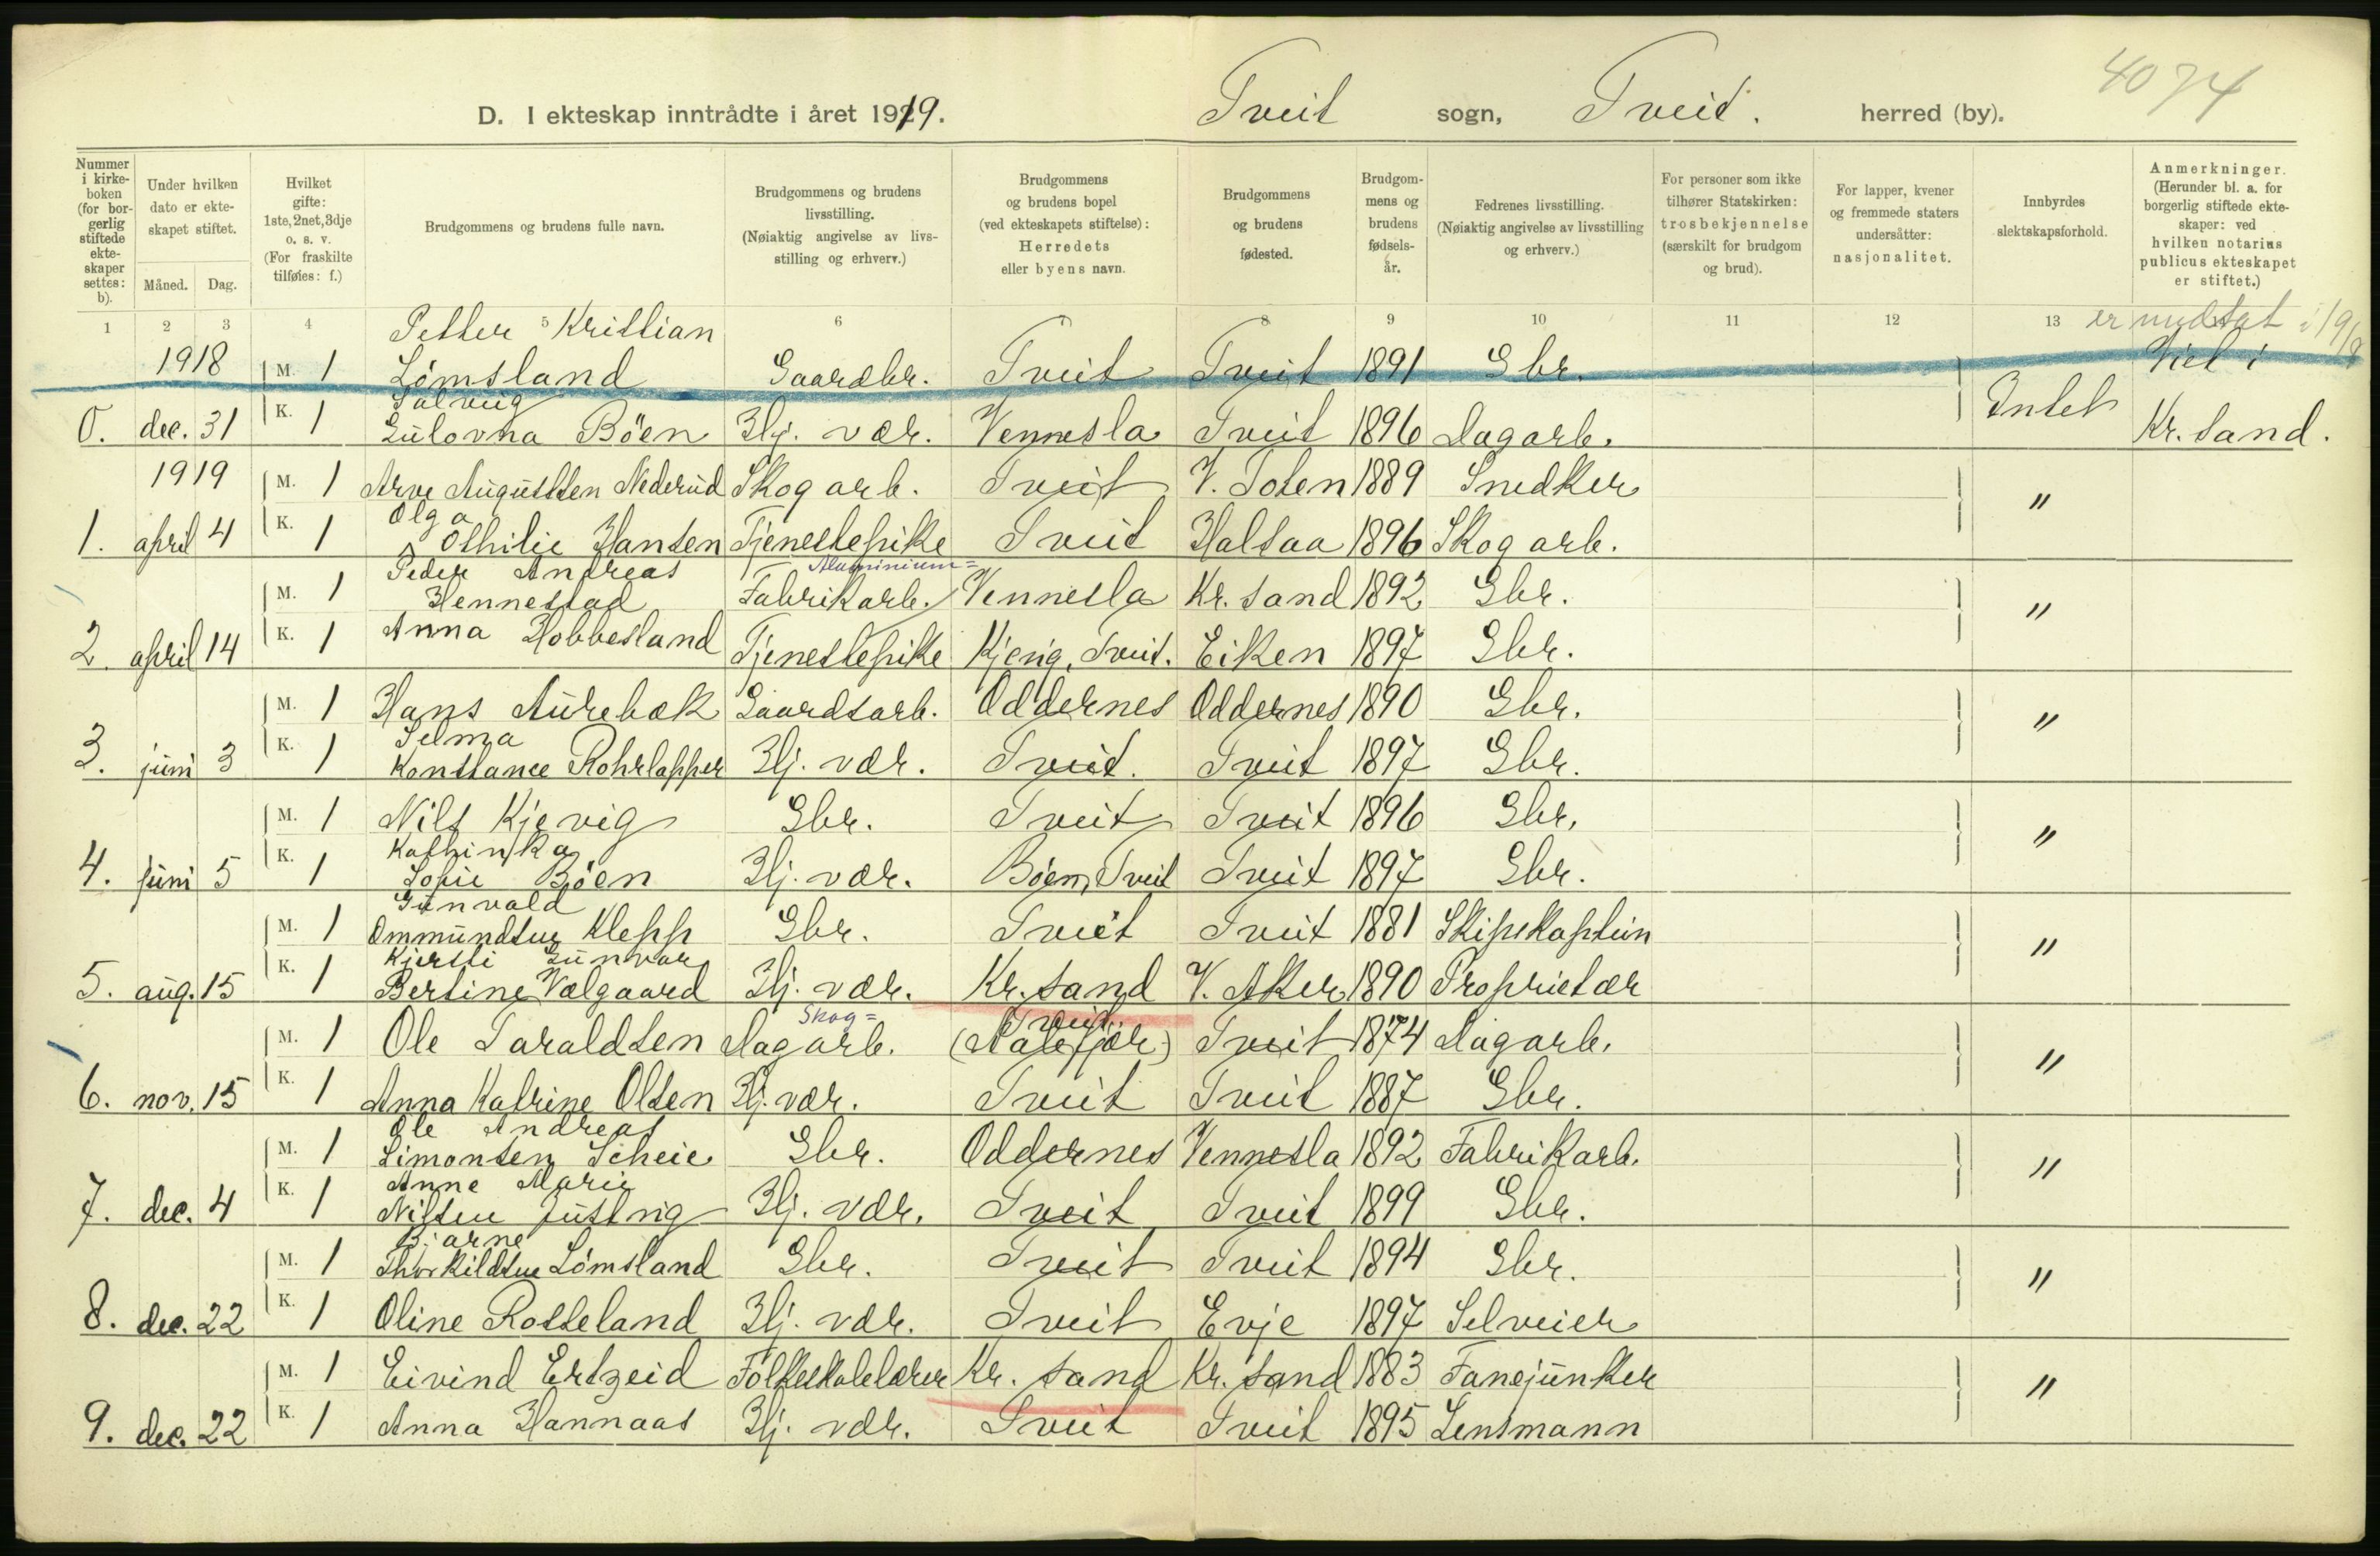 4074
D. I ekteskap inntrådte i året 1919. Tveit sogn, Tveit. herred (by).
Nummer i kirkeboken (for borgerlig stiftede ekteskaper settes: b).
Under hvilken dato er ekteskapet stiftet.
Måned. Dag.
Hvilket gifte: 1ste, 2net, 3dje o. s. v. (For fraskilte tilføies: f.)
Brudgommens og brudens fulle navn.
Brudgommens og brudens livsstilling. (Nøiaktig angivelse av livsstilling og erhverv.)
Brudgommens og brudens bopel (ved ekteskapets stiftelse): Herredets eller byens navn.
Brudgommens og brudens fødested.
Brudgommens og brudens fødselsår.
Fedrenes livsstilling. (Nøiaktig angivelse av livsstilling og erhverv.)
For personer som ikke tilhører Statskirken: trosbekjennelse (særskilt for brudgom og brud).
For lapper, kvener og fremmede staters undersåtter: nasjonalitet.
Innbyrdes slektskapsforhold.
Anmerkninger. (Herunder bl. a. for borgerlig stiftede ekteskaper: ved hvilken notarius publicus ekteskapet er stiftet.)
1 2 3 4 5 6 8 9 10 11 12 13
er medtat i 19/8
1918 M. 1 Petter Kristian Lömsland Gaardbr. Tveit Tveit 1891 Gbr. Viet i
0. dec. 31 K. 1 Solveig Gulovna Böen Hj. vær. Vennesla Tveit 1896 Dagarb. Intet Kr. sand.
1919 M. 1 Arve Augustsen Nederud Skogarb. Tveit V. Toten 1889 Snedker "
1. april 4 K. 1 Olga Othilie Hansen Tjenestepike Tveit Halsaa 1896 Skogarb.
M. 1 Peder Andreas Hennestad Aluminium= Fabrikarb. Vennesla Kr. sand 1892 Gbr. "
2. april 14 K. 1 Anna Hobbesland Tjenestepike Kjevig, Tveit. Eiken 1897 Gbr.
M. 1 Hans Aurebæk Gaardsarb. Oddernes Oddernes 1890 Gbr. "
3. juni 3 K. 1 Selma Konstance Rohrlapper Hj. vær. Tveit. Tveit 1897 Gbr.
M. 1 Nils Kjevig Gbr. Tveit Tveit 1896 Gbr. "
4. juni 5 K. 1 Kathinka Sofie Böen Hj. vær. Böen, Tveit Tveit 1897 Gbr.
M. 1 Gunvald Ommundsen Klepp Gbr. Tveit Tveit 1881 Skipskaptein "
5. aug. 15 K. 1 Kjersti Gunvor Bertine Valgaard Hj. vær. Kr. sand V. Aker 1890 Proprietær
M. 1 Ole Taraldsen Skog= Dagarb. Tveit. (Aalefjær) Tveit 1874 Dagarb. "
6. nov. 15 K. 1 Anna Katrine Olsen Hj. vær. Tveit Tveit 1887 Gbr.
M. 1 Ole Andreas Simonsen Scheie Gbr. Oddernes Vennesla 1892 Fabrikarb. "
7. dec. 4 K. 1 Anne Marie Nilsen Justvig Hj. vær. Tveit Tveit 1899 Gbr.
M. 1 Bjarne Thorkildsen Lömsland Gbr. Tveit Tveit 1894 Gbr. "
8. dec. 22 K. 1 Oline Rosseland Hj. vær. Tveit Evje 1897 Selveier
M. 1 Eivind Ertzeid Folkeskolelærer Kr. sand Kr. sand 1883 Fanejunker "
9. dec. 22 K. 1 Anna Hannaas Hj. vær. Tveit Tveit 1895 Lensmann